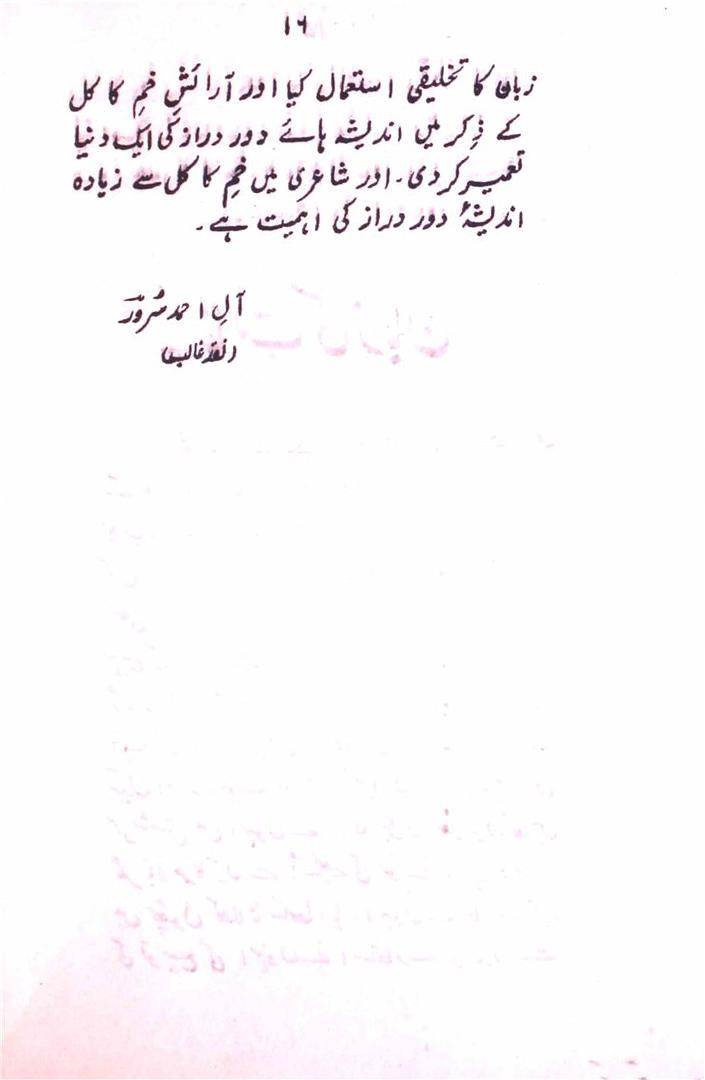 ۱۶
زبان کا تخلیقی استعمال کیا اور آرائشِ خمِ کاکل
کے ذکر میں اندیشہ ہائے دور دراز کی ایک دنیا
تعمیر کر دی۔ اور شاعری میں خمِ کاکل سے زیادہ
اندیشۂ دور دراز کی اہمیت ہے۔
آلِ احمد سرورؔ
(نقد غالب)